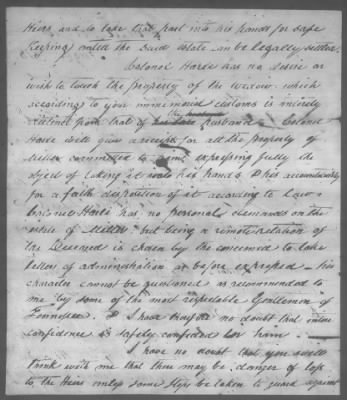 Heirs and to take that part into his hands for safe
keeping untill the said estate can be legally settled.
Colonel Harle has no desire or
wish to touch the property of the widow which
according to your immemorial customs is intirely
the husband
distinct from that of husband Colonel
Harle will give a receipt for all the property of
committed to him expressing fully the
object of taking it into his hands & his accountability
for a faith disposition of it according to Law
Colonel Harle has no personal demands on the
estate of but being a remote relation of
the Deceased is chosen by the concerned to take
letters of administration as before expressed his
character cannot be questioned is recommended to
me by some of the most respectable Gentlemen of
Tennessee & I have therefore no doubt that intire
confidence safety confided in him
I have no doubt that you will
think with me that there may be danger of loss
to the Heirs unless some steps be taken to guard against